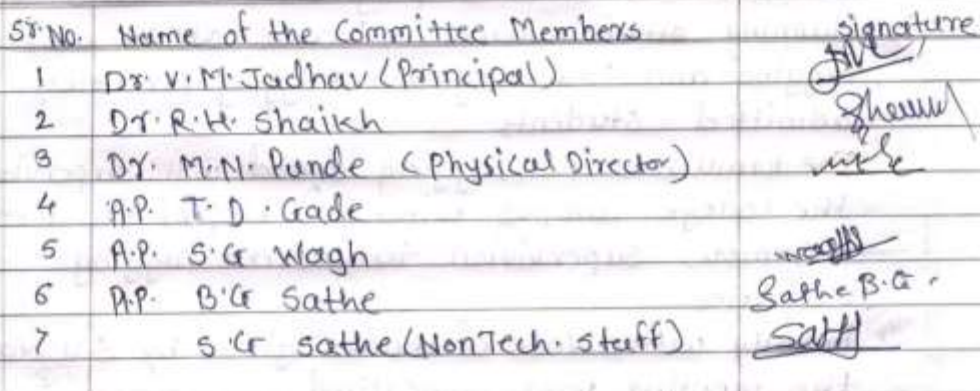 Sr. No. Name of the Committee Members Signature
1 Dr. V. M. Jadhav (Principal)
2 Dr. R. H. Shaikh
3 Dr. M. N. Punde (Physical Director)
4 A.P. T. D. Gade
5 A.P. S. G Wagh
6 A.P. B. G Sathe Sathe B. G.
7 S. G Sathe (Non Tech. Staff)